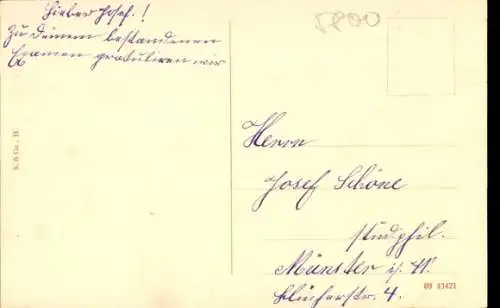 Lieber Josef.!
Zu Deinem bestandenen
Examen gratuliren wir
5800
Herrn
Josef Schöne
stud phil.
Münster i. W.
Blücherstr. 4.
09 83421